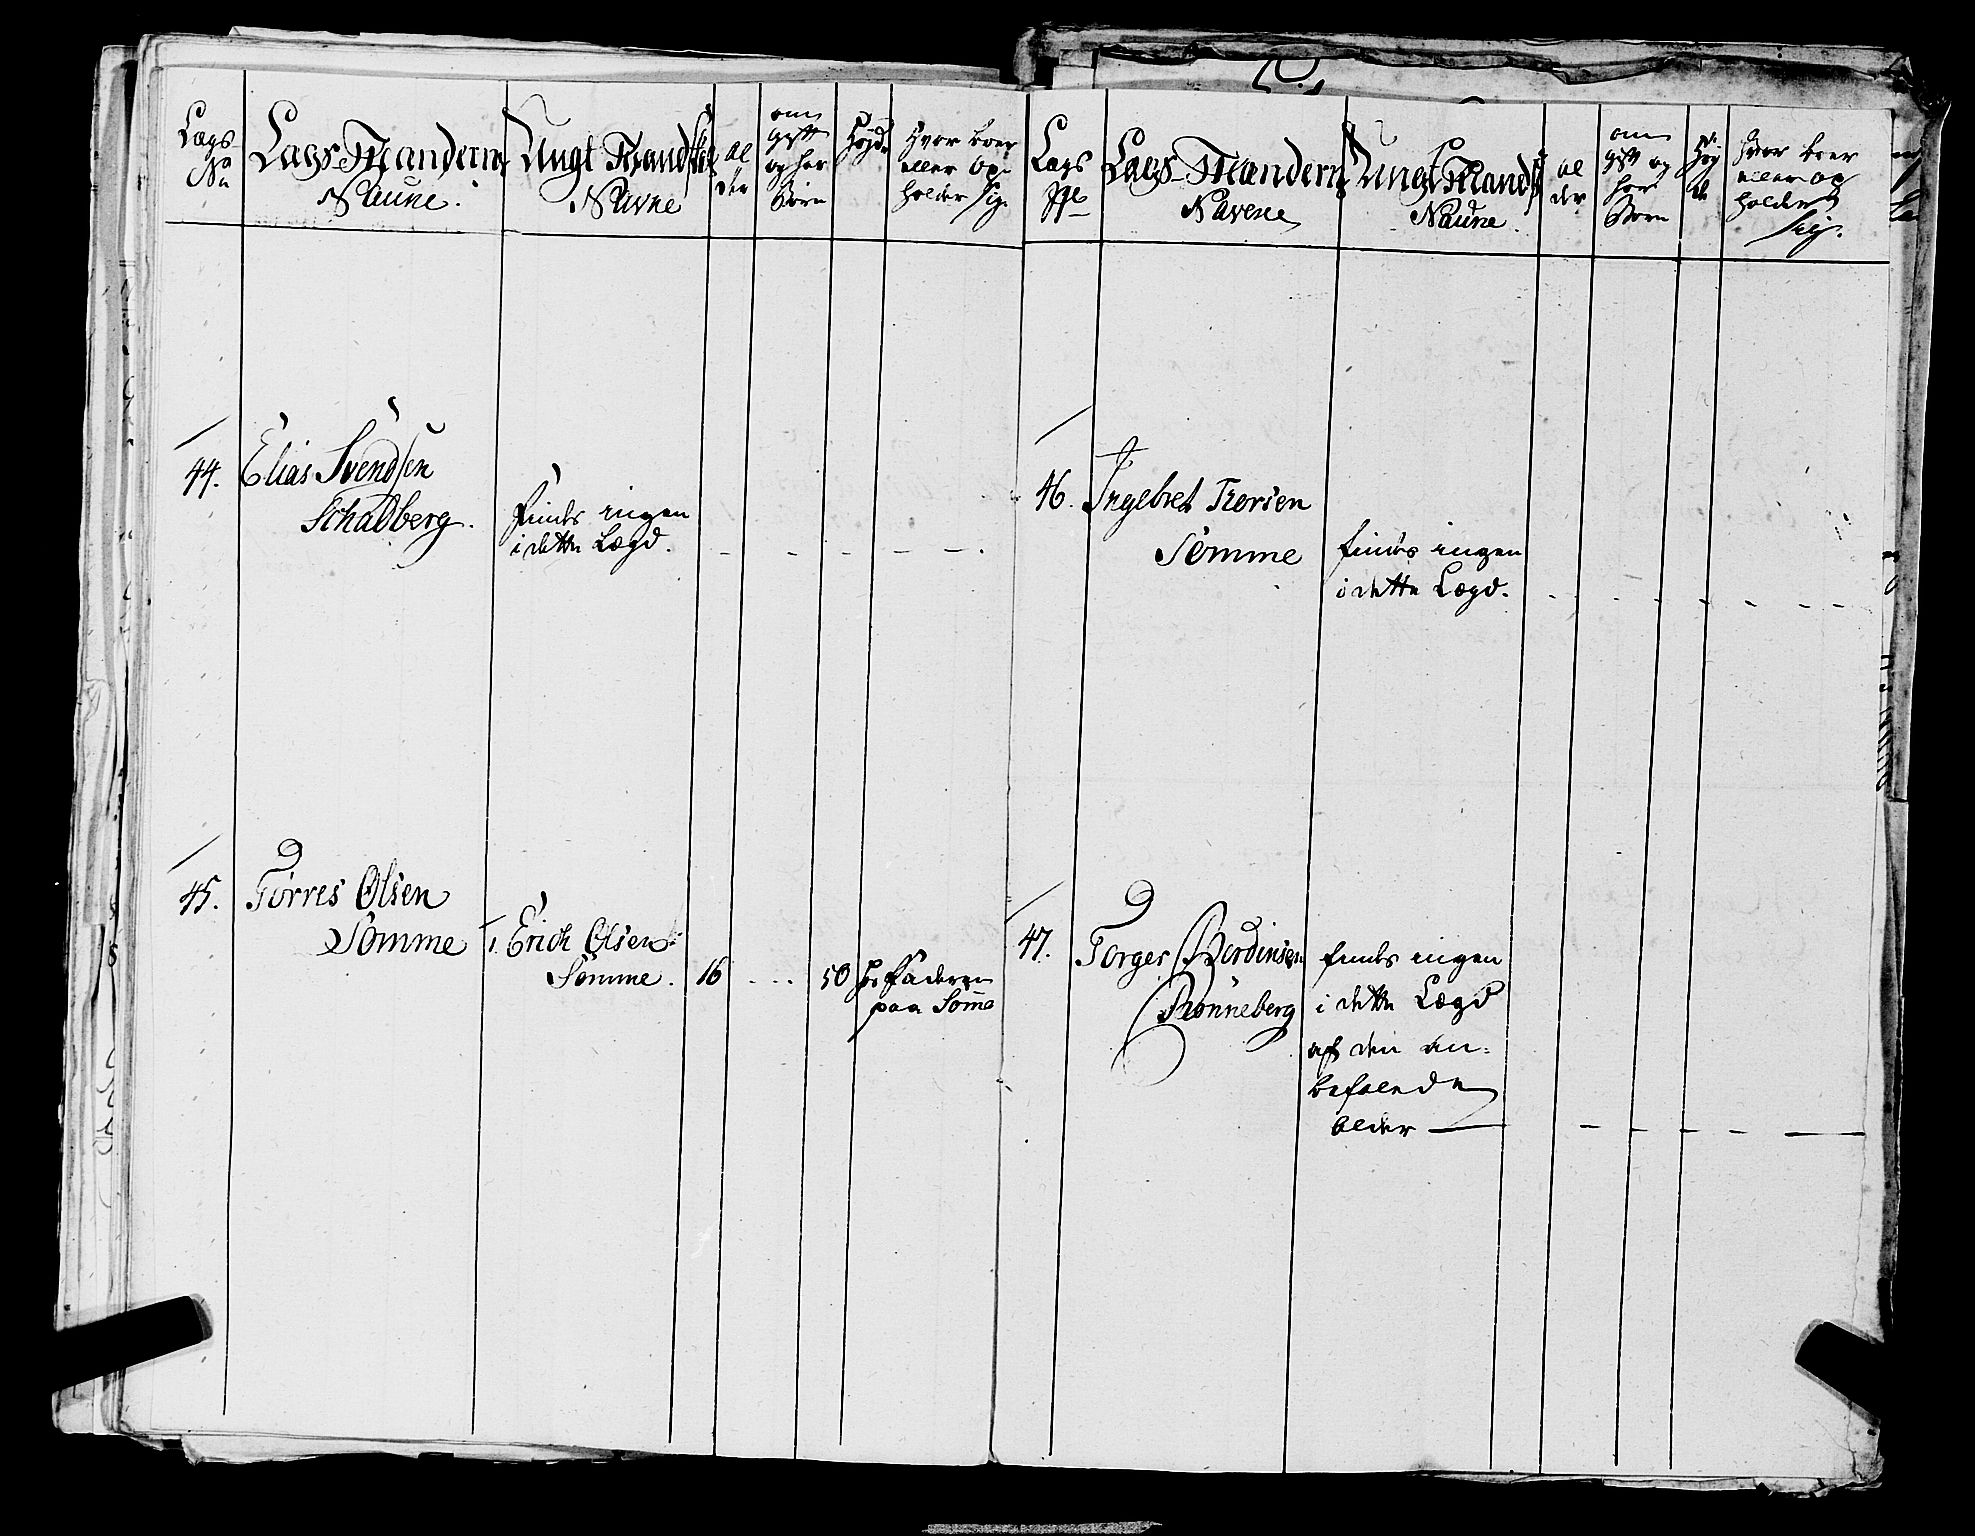 Lægs
No
LægsMændernes
Naune.
Ungt Mandskabs
Navne
Al
der
om
gift
og har
Börn
Höyde
Hvor boer
eller op=
holder sig.
44.
Elias Svendsen
Schadberg.
findes ingen
i dette Lægd.
45.
Törres Olsen
Sömme
1. Erich Olsen
Sömme.
16
50
hos Faderen
paa Sömme
Lægs
Lægs-Mændernes
Navne
Ungt Mands
Naune.
Al
der
om
gift og
har
Börn
Höy
de
Hvor boer
eller op
holder
sig.
46.
Ingebret Thorsen
Sömme
findes ingen
i dette Lægd.
47.
Torger
Rönneberg
findes ingen
i dette Lægd
af den an=
befalende
Alder